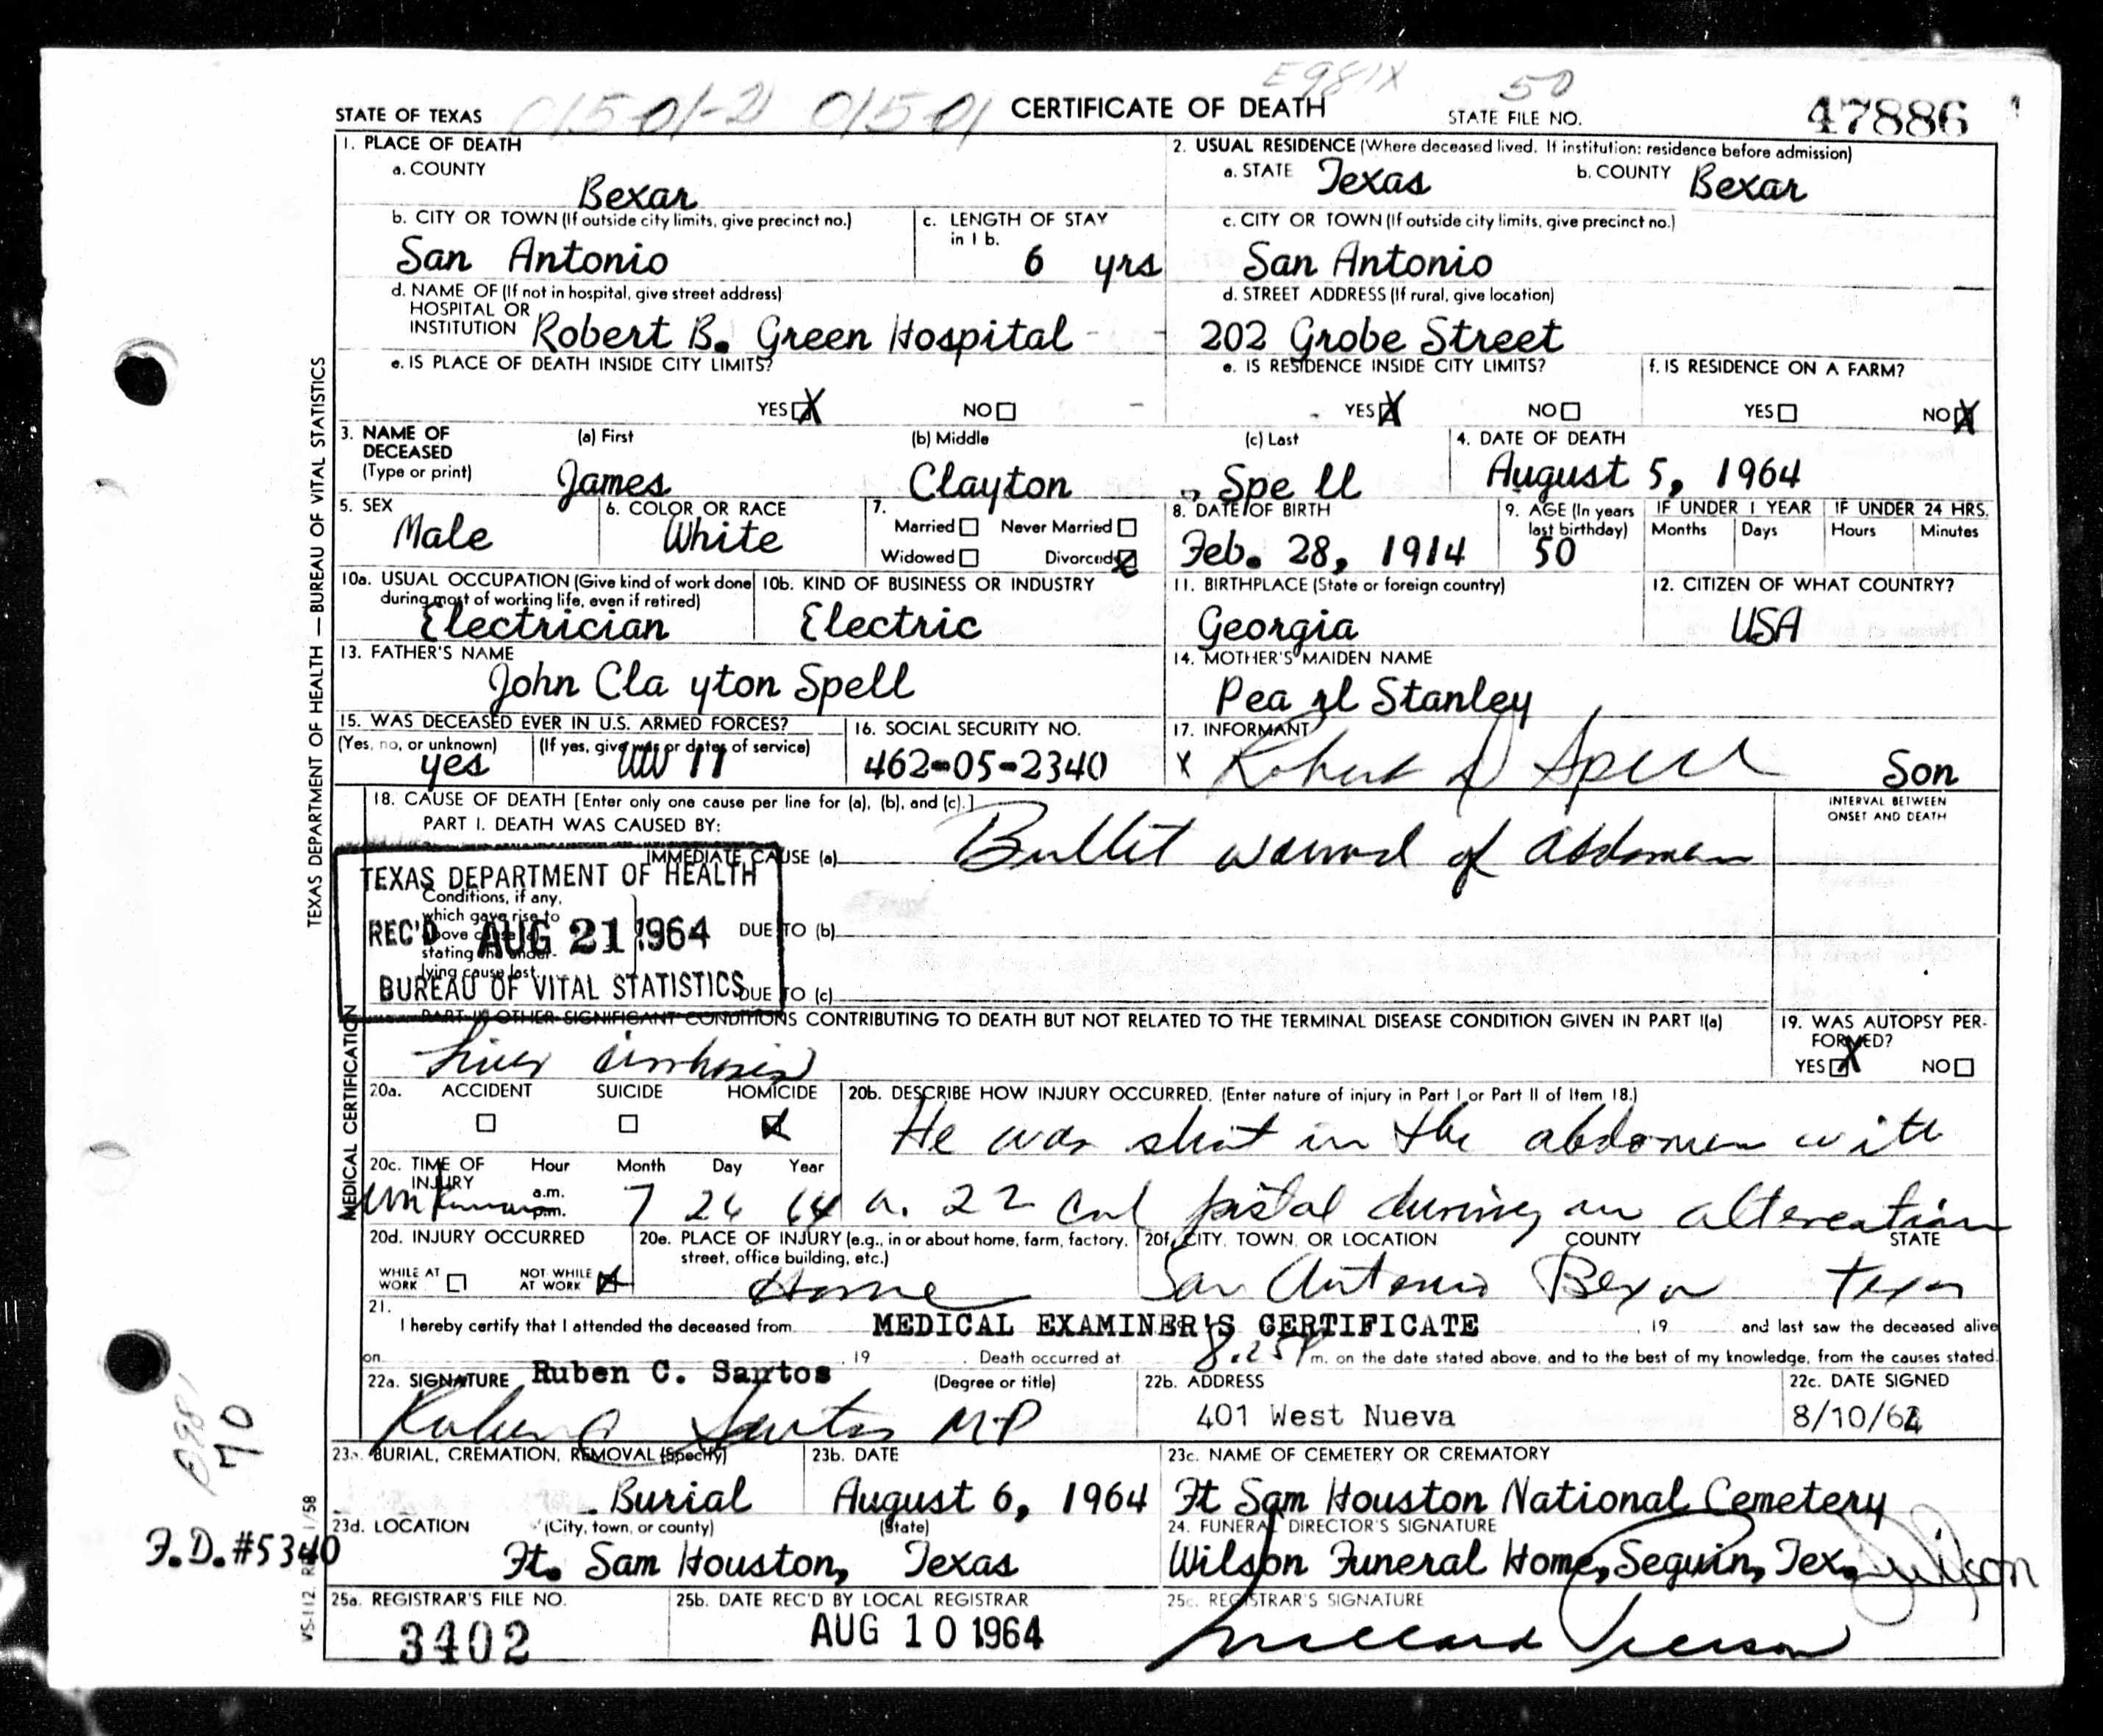 E981X 50
STATE OF TEXAS 01501-2 01501 CERTIFICATE OF DEATH STATE FILE NO. 47886
1. PLACE OF DEATH
a. COUNTY
Bexar
2. USUAL RESIDENCE (Where deceased lived. If institution: residence before admission)
a. STATE Texas b. COUNTY Bexar
b. CITY OR TOWN (If outside city limits, give precinct no.)
San Antonio
c. LENGTH OF STAY
in 1 b.
6 yrs
c. CITY OR TOWN (If outside city limits, give precinct no.)
San Antonio
d. NAME OF (If not in hospital, give street address)
HOSPITAL OR
INSTITUTION Robert B. Green Hospital
d. STREET ADDRESS (If rural, give location)
202 Grobe Street
e. IS PLACE OF DEATH INSIDE CITY LIMITS?
YES X NO
e. IS RESIDENCE INSIDE CITY LIMITS?
YES X NO
f. IS RESIDENCE ON A FARM?
YES NO X
3. NAME OF
DECEASED
(Type or print)
(a) First (b) Middle (c) Last
James Clayton Spe ll
4. DATE OF DEATH
August 5, 1964
5. SEX
Male
6. COLOR OR RACE
White
7.
Married Never Married
Widowed Divorced X
8. DATE OF BIRTH
Feb. 28, 1914
9. AGE (In years
last birthday)
50
IF UNDER 1 YEAR
Months Days
IF UNDER 24 HRS.
Hours Minutes
10a. USUAL OCCUPATION (Give kind of work done
during most of working life, even if retired)
Electrician
10b. KIND OF BUSINESS OR INDUSTRY
Electric
11. BIRTHPLACE (State or foreign country)
Georgia
12. CITIZEN OF WHAT COUNTRY?
USA
13. FATHER'S NAME
John Cla yton Spell
14. MOTHER'S MAIDEN NAME
Pea rl Stanley
15. WAS DECEASED EVER IN U.S. ARMED FORCES?
(Yes, no, or unknown) (If yes, give war or dates of service)
yes WW II
16. SOCIAL SECURITY NO.
462-05-2340
17. INFORMANT
X Robert D Spell Son
18. CAUSE OF DEATH [Enter only one cause per line for (a), (b), and (c).]
PART I. DEATH WAS CAUSED BY:
IMMEDIATE CAUSE (a) Bullet wound of abdomen
INTERVAL BETWEEN
ONSET AND DEATH
Conditions, if any,
which gave rise to
above cause (a)
stating the under-
lying cause last.
DUE TO (b)
DUE TO (c)
TEXAS DEPARTMENT OF HEALTH
REC'D AUG 21 1964
BUREAU OF VITAL STATISTICS
PART II. OTHER SIGNIFICANT CONDITIONS CONTRIBUTING TO DEATH BUT NOT RELATED TO THE TERMINAL DISEASE CONDITION GIVEN IN PART I(a)
Liver cirrhosis
19. WAS AUTOPSY PER-
FORMED?
YES X NO
20a. ACCIDENT SUICIDE HOMICIDE
X
20b. DESCRIBE HOW INJURY OCCURRED. (Enter nature of injury in Part I or Part II of Item 18.)
He was shot in the abdomen with
a. 22 cal pistol during an altercation
20c. TIME OF
INJURY
Hour Month Day Year
a.m.
p.m.
Unknown 7 26 64
20d. INJURY OCCURRED
WHILE AT
WORK
NOT WHILE
AT WORK X
20e. PLACE OF INJURY (e.g., in or about home, farm, factory,
street, office building, etc.)
Home
20f. CITY, TOWN, OR LOCATION COUNTY STATE
San Antonio Bexar Texas
21.
I hereby certify that I attended the deceased from MEDICAL EXAMINER'S CERTIFICATE , 19 and last saw the deceased alive
on , 19 . Death occurred at 8.25P m. on the date stated above, and to the best of my knowledge, from the causes stated.
22a. SIGNATURE Ruben C. Santos (Degree or title)
Ruben C Santos MD
22b. ADDRESS
401 West Nueva
22c. DATE SIGNED
8/10/64
23a. BURIAL, CREMATION, REMOVAL (Specify)
Burial
23b. DATE
August 6, 1964
23c. NAME OF CEMETERY OR CREMATORY
Ft Sam Houston National Cemetery
23d. LOCATION (City, town, or county) (State)
Ft. Sam Houston, Texas
24. FUNERAL DIRECTOR'S SIGNATURE
Wilson Funeral Home, Seguin, Tex. Wilson
25a. REGISTRAR'S FILE NO.
3402
25b. DATE REC'D BY LOCAL REGISTRAR
AUG 10 1964
25c. REGISTRAR'S SIGNATURE
TEXAS DEPARTMENT OF HEALTH — BUREAU OF VITAL STATISTICS
MEDICAL CERTIFICATION
70
F.D. #5340